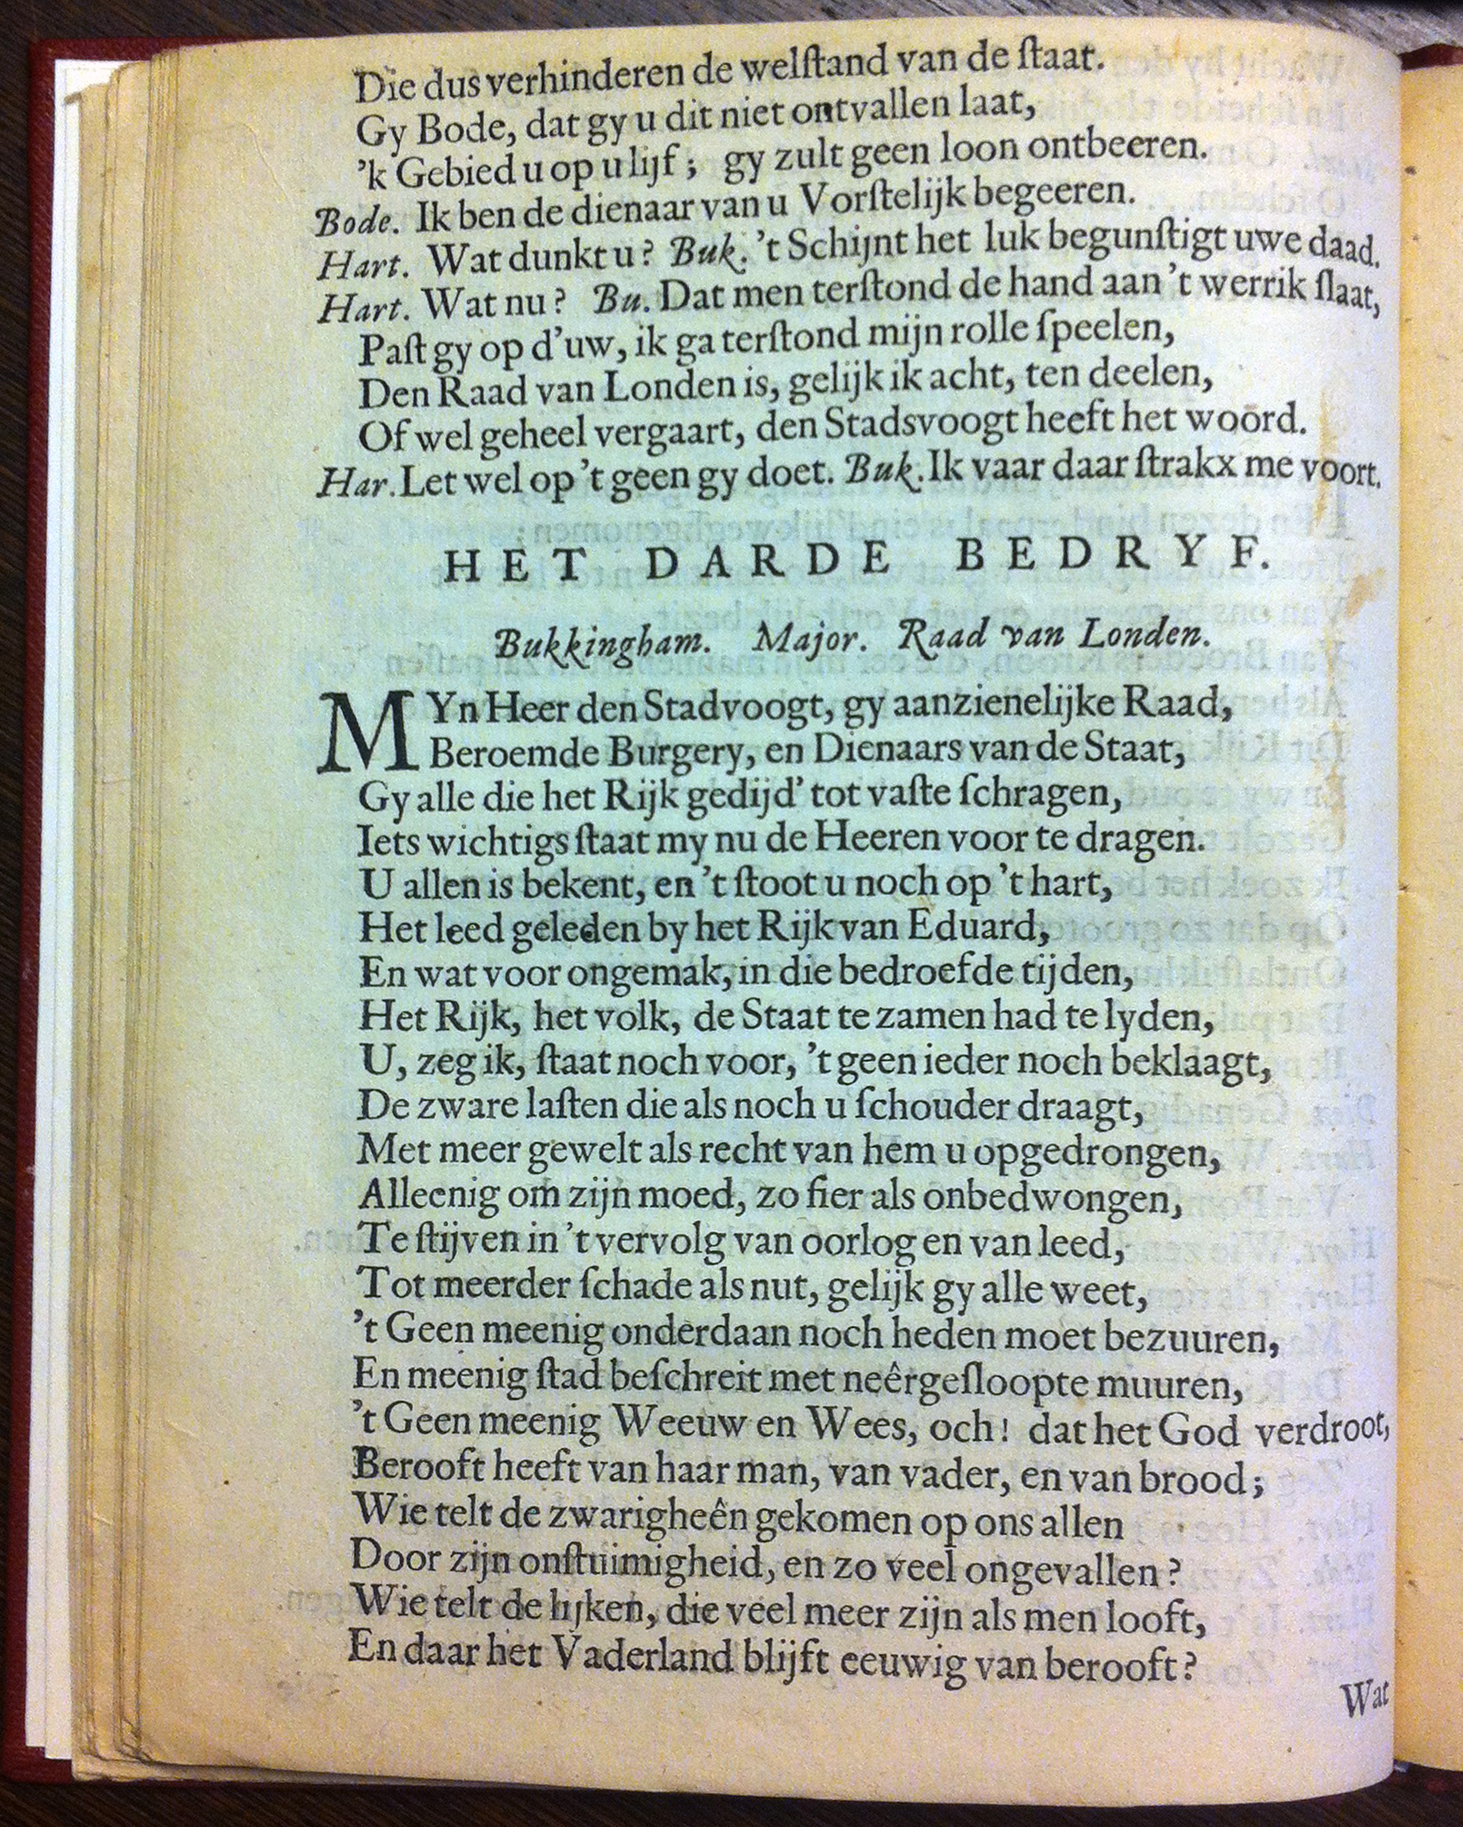 Die dus verhinderen de welſtand van de ſtaat.
Gy Bode, dat gy u dit niet ontvallen laat,
'k Gebied u op u lijf; gy zult geen loon ontbeeren.
Bode. Ik ben de dienaar van u Vorſtelijk begeeren.
Hart. Wat dunkt u? Buk. 't Schijnt het luk begunſtigt uwe daad.
Hart. Wat nu? Bu. Dat men terſtond de hand aan 't werrik ſlaat,
Paſt gy op d'uw, ik ga terſtond mijn rolle ſpeelen,
Den Raad van Londen is, gelijk ik acht, ten deelen,
Of wel geheel vergaart, den Stadsvoogt heeft het woord.
Har. Let wel op 't geen gy doet. Buk. Ik vaar daar ſtrakx me voort.
HET DARDE BEDRYF.
Bukkingham. Major. Raad van Londen.
MYn Heer den Stadvoogt, gy aanzienelijke Raad,
Beroemde Burgery, en Dienaars van de Staat,
Gy alle die het Rijk gedijd' tot vaſte ſchragen,
Iets wichtigs ſtaat my nu de Heeren voor te dragen.
U allen is bekent, en 't ſtoot u noch op 't hart,
Het leed geleden by het Rijk van Eduard,
En wat voor ongemak, in die bedroefde tijden,
Het Rijk, het volk, de Staat te zamen had te lyden,
U, zeg ik, ſtaat noch voor, 't geen ieder noch beklaagt,
De zware laſten die als noch u ſchouder draagt,
Met meer gewelt als recht van hem u opgedrongen,
Alleenig om zijn moed, zo fier als onbedwongen,
Te ſtijven in 't vervolg van oorlog en van leed,
Tot meerder ſchade als nut, gelijk gy alle weet,
't Geen meenig onderdaan noch heden moet bezuuren,
En meenig ſtad beſchreit met neêrgeſloopte muuren,
't Geen meenig Weeuw en Wees, och! dat het God verdroot,
Berooft heeft van haar man, van vader, en van brood;
Wie telt de zwarigheên gekomen op ons allen
Door zijn onſtuimigheid, en zo veel ongevallen?
Wie telt de lijken, die veel meer zijn als men looft,
En daar het Vaderland blijft eeuwig van berooft?
Wat